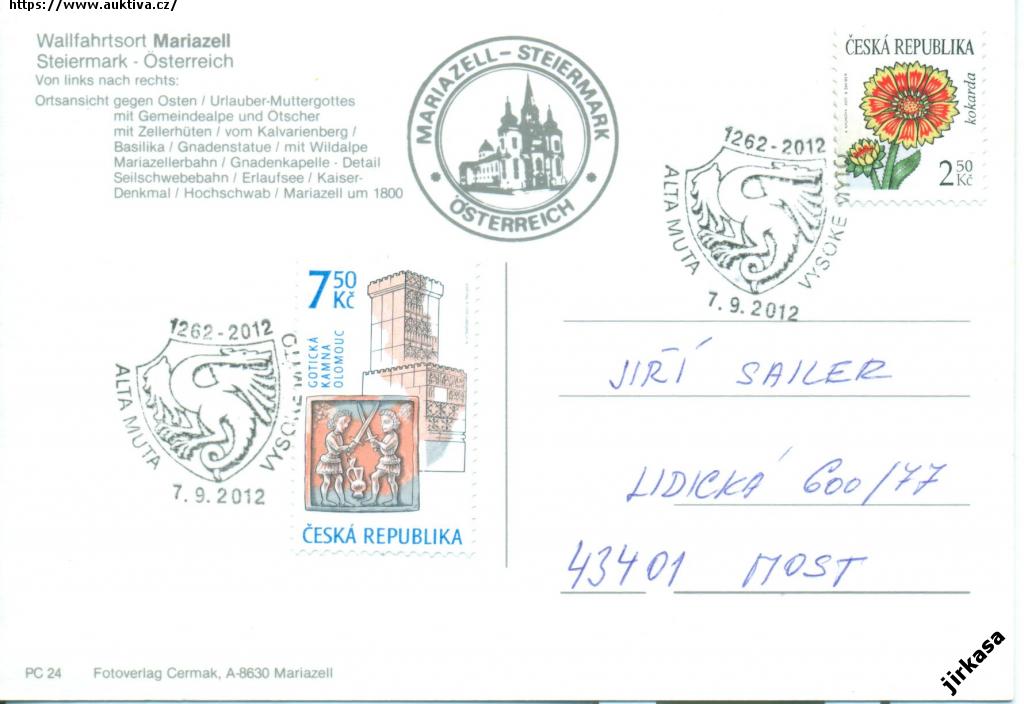 https://www.auktiva.cz/
Wallfahrtsort Mariazell
Steiermark - Österreich
Von links nach rechts:
Ortsansicht gegen Osten / Urlauber-Muttergottes
mit Gemeindealpe und Ötscher
mit Zellerhüten / vom Kalvarienberg /
Basilika / Gnadenstatue / mit Wildalpe
Mariazellerbahn / Gnadenkapelle - Detail
Seilschwebebahn / Erlaufsee / Kaiser-
Denkmal / Hochschwab / Mariazell um 1800
MARIAZELL - STEIERMARK
* ÖSTERREICH *
ČESKÁ REPUBLIKA
kokarda
2 50
Kč
1262-2012
ALTA MUTA
VYSOKÉ MÝTO
7.9.2012
7 50
Kč
GOTICKÁ
KAMNA
OLOMOUC
ČESKÁ REPUBLIKA
1262-2012
ALTA MUTA
VYSOKÉ MÝTO
7.9.2012
JIŘÍ SAILER
LIDICKÁ 600/77
43401 MOST
PC 24 Fotoverlag Cermak, A-8630 Mariazell
jirkasa